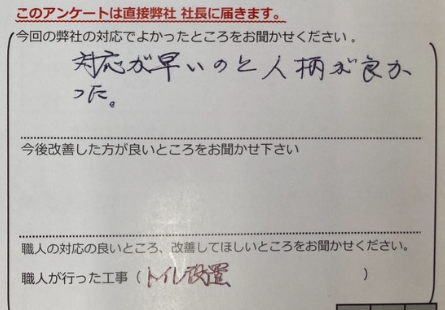 このアンケートは直接弊社 社長に届きます。
今回の弊社の対応でよかったところをお聞かせください。
対応が早いのと人柄が良か
った。
今後改善した方が良いところをお聞かせ下さい
職人の対応の良いところ、改善してほしいところをお聞かせください。
職人が行った工事（トイレ設置）